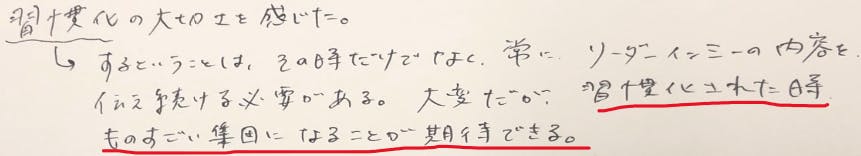 習慣化の大切さを感じた。
するということは、その時だけでなく、常に リーダーインミーの内容を
伝え続ける必要がある。大変だが、習慣化された時
ものすごい集団になることが期待できる。